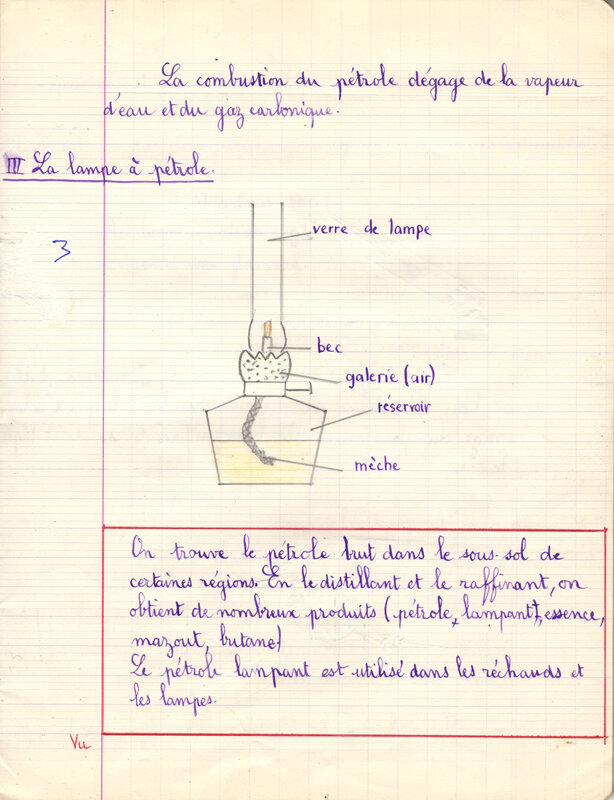 La combustion du pétrole dégage de la vapeur
d'eau et du gaz carbonique.
III La lampe à pétrole.
verre de lampe
3
bec
galerie (air)
réservoir
mèche
On trouve le pétrole brut dans le sous-sol de
certaines régions. En le distillant et le raffinant, on
obtient de nombreux produits (pétrole, lampant, essence,
mazout, butane)
Le pétrole lampant est utilisé dans les réchauds et
les lampes.
Vu